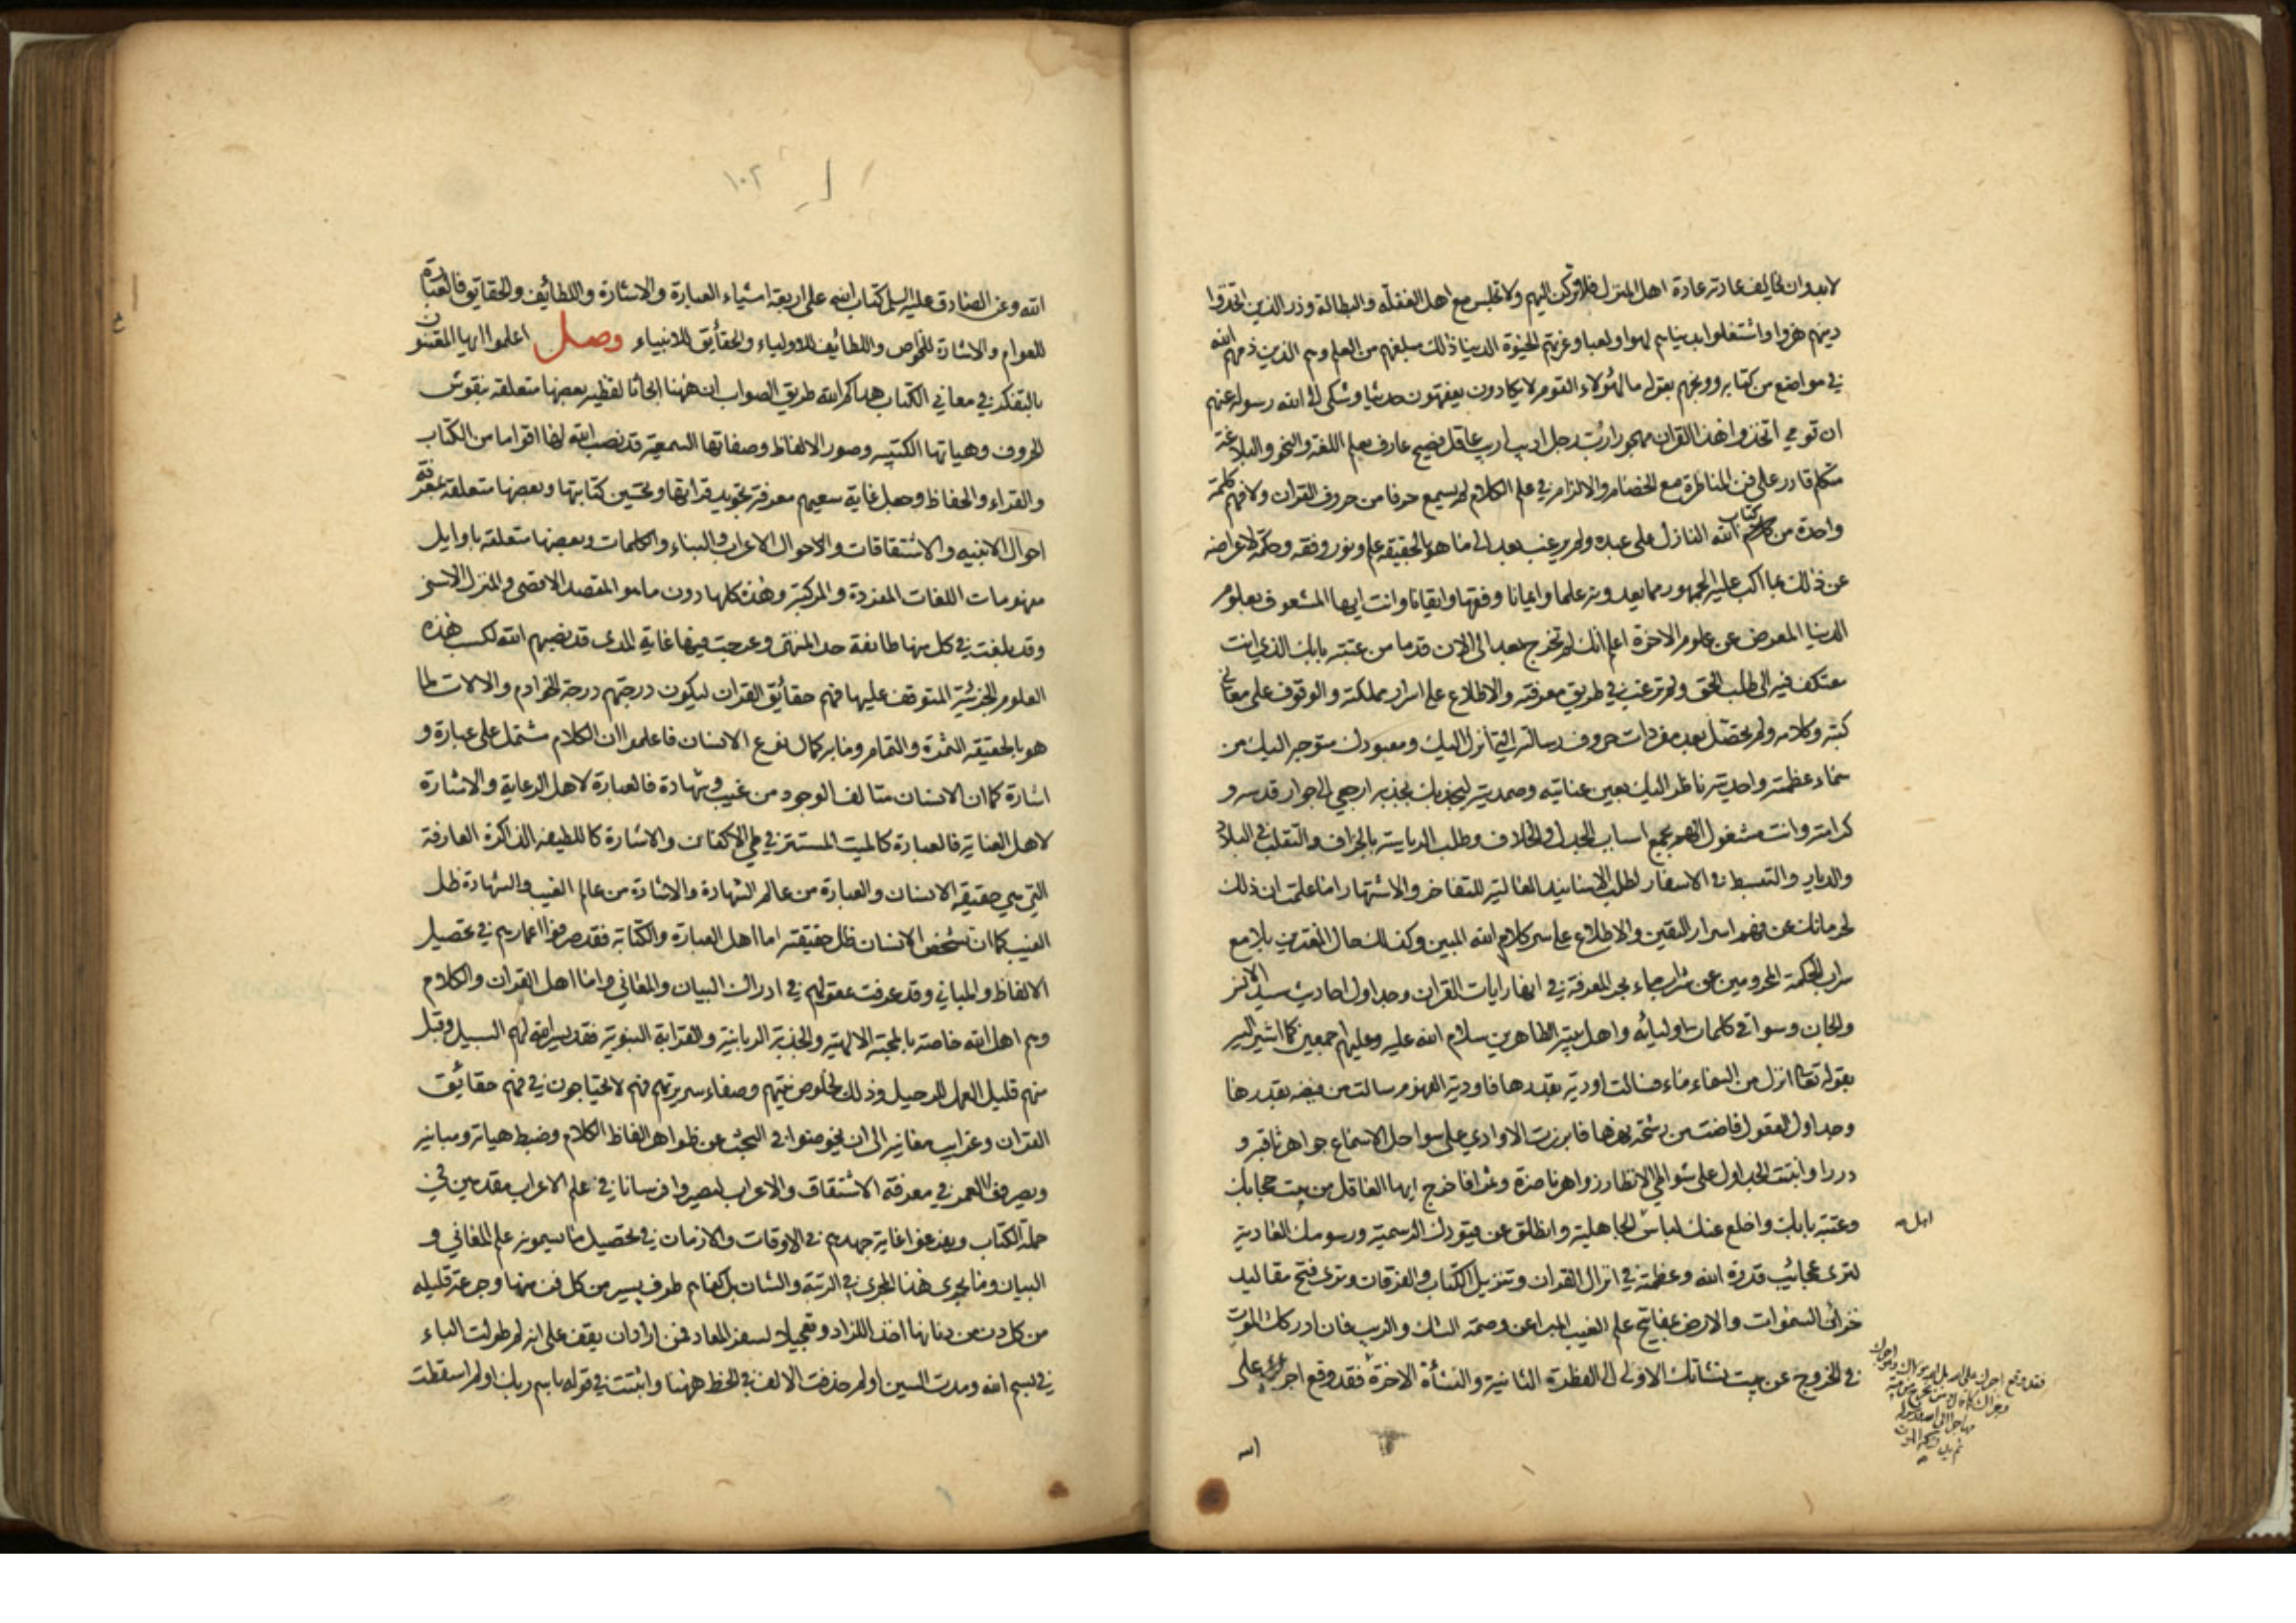 لابد وان يخالف عادته عادة اهل المنزل فلا تركن اليهم ولا تجلس مع اهل الغفلة والبطالة وذر الذين اتخذوا
دينهم هزوا واشتغلوا بدنياهم لهوا ولعبا وغرتهم الحيوة الدنيا ذلك مبلغهم من العلم وهم الذين ذمهم الله
في مواضع من كتابه ووبخهم بقوله ما لهؤلاء القوم لا يكادون يفقهون حديثا وشكى الى الله رسوله عنهم
ان قومي اتخذوا هذا القران مهجورا رب رجل اديب اريب عاقل فصيح عارف بعلم اللغة والنحو والبلاغة
متكلم قادر على فن المناظرة مع الخصام والالزام في علم الكلام لم يسمع حرفا من حروف القران ولا فهم كلمة
واحدة من كتاب الله النازل على عبده ولم يرغب بعد الى ما هو بالحقيقة علم ونور وفقه وحكمة لاعراضه
عن ذلك بما اكب عليه الجمهور مما يعدونه علما وايمانا وفقها وايقانا وانت ايها المشعوف بعلوم
الدنيا المعرض عن علوم الاخرة اعلم انك لم تخرج بعد الى الان قدما من عتبة بابك الذي انت
معتكف فيه الى طلب الحق ولم ترغب في طريق معرفته والاطلاع على اسرار مملكته والوقوف على معاني
كتبه وكلامه ولم تحصل بعد مفردات حروف رسالته التي انزل اليك ومعبودك متوجه اليك من
سماء عظمته واحديته ناظر اليك بعين عنايته وصمديته ليجذبك بجذبة ارجعي الى جوار قدسه و
كرامته وانت مشغول الهم بجمع اسباب الجدل والخلاف وطلب الرياسة بالجزاف والتقلب في البلاد
والديار والتبسط في الاسفار لطلب الاسانيد العالية للتفاخر والاشتهار اما علمت ان ذلك
لحرمانك عن فهم اسرار اليقين والاطلاع على سر كلام الله المبين وكذلك حال المغترين بلامع
سراب الحكمة المحرومين عن شراب ماء بحر المعرفة في انهار ايات القران وجداول احاديث سيد الانس
والجان وسواقي كلمات اوليائه واهل بيته الطاهرين سلام الله عليه وعليهم اجمعين كما اشير اليه
بقوله تعالى انزل من السماء ماء فسالت اودية بقدرها فاودية الفهوم سالت من فيضه بقدرها
وجداول العقول فاضت من رشحة بحرها فابرزت الاوادي على سواحل الاسماع جواهر ثاقبة و
دررا وانبتت الجداول على شواطئ الانظار زواهر ناضرة وثمرا فاخرج ايها الغافل من بيت حجابك
وعتبة بابك واخلع عنك لباس الجاهلية وانطلق عن قيودك الرسمية ورسومك العادية
لترى عجائب قدرة الله وعظمته في انزال القران وتنزيل الكتاب والفرقان وترى فتح مقاليد
خزائن السموات والارض بمفاتيح علم الغيب المبرا عن وصمة الشك والريب فان ادركك الموت
في الخروج عن بيت نشأتك الاولى الى الفطرة الثانية والنشأة الاخرة فقد وقع اجرك على
الله
الله وعن الصادق عليه السلم كتاب الله على اربعة اشياء العبارة والاشارة واللطائف والحقايق فالعبارة
للعوام والاشارة للخواص واللطائف للاولياء والحقائق للانبياء وصل اعلموا ايها المفتنون
بالتفكر في معاني الكتاب هداكم الله طريق الصواب ان ههنا ابحاثا لفظية بعضها متعلقة بنقوش
الحروف وهياتها الكتبية وصور الالفاظ وصفاتها السمعية قد نصب الله لها اقواما من الكتاب
والقراء والحفاظ وجعل غاية سعيهم معرفة تجويد قرائتها وتحسين كتابتها وبعضها متعلقة بمعرفة
احوال الابنيه والاشتقاقات والاحوال الاعراب والبناء والكلمات وبعضها متعلقة باوايل
مفهومات اللغات المفردة والمركبة وهذه كلها دون ما هو المقصد الاقصى والمنزل الاسنى
وقد بلغت في كل منها طائفة حد المنتهى وعرجت فيها غاية المدى قد نصبهم الله لكسب هذه
العلوم الجزئية المتوقف عليها فهم حقائق القران ليكون درجتهم درجة الخوادم والالات لما
هو بالحقيقة الثمرة والتمام وما به كمال نوع الانسان فاعلموا ان الكلام مشتمل على عبارة و
اشارة كما ان الانسان متالف الوجود من غيب وشهادة فالعبارة لاهل الرعاية والاشارة
لاهل العناية فالعبارة كالميت المستتر في طي الاكفان والاشارة كاللطيفة الذاكرة العارفة
التي هي حقيقة الانسان والعبارة من عالم الشهادة والاشارة من عالم الغيب والشهادة ظل
الغيب كما ان تشخص الانسان ظل حقيقته اما اهل العبارة والكتابة فقد صرفوا اعمارهم في تحصيل
الالفاظ والمباني وقد غرقت عقولهم في ادراك البيان والمعاني واما اهل القران والكلام
وهم اهل الله خاصة بالمحبة الالهية والجذبة الربانية والقرابة النبوية فقد يسر الله لهم السبيل وقبل
منهم قليل العمل للرحيل وذلك لخلوص نيتهم وصفاء سريرتهم فهم لا يحتاجون في فهم حقائق
القران وغرايب معانيه الى ان يخوضوا في البحث عن ظواهر الفاظ الكلام وضبط هياته ومبانيه
ويصرفوا العمر في معرفة الاشتقاق والاعراب ليصيروا فرسانا في علم الاعراب مقدمين في
حملة الكتاب ويفرغوا غاية جهدهم في الاوقات والازمان في تحصيل ما يسمونه علم المعاني و
البيان وما يجري هذا المجرى في الرتبة والشان بل كفاهم طرف يسير من كل فن منها وجرعة قليله
من كل دن من دنانها اخذا للزاد وتعجيلا لسفر المعاد فمن اراد ان يقف على انه لم طولت الباء
في بسم الله ومدت السين او لم حذفت الالف في الخط ههنا واثبتت في قوله باسم ربك او لم اسقطت